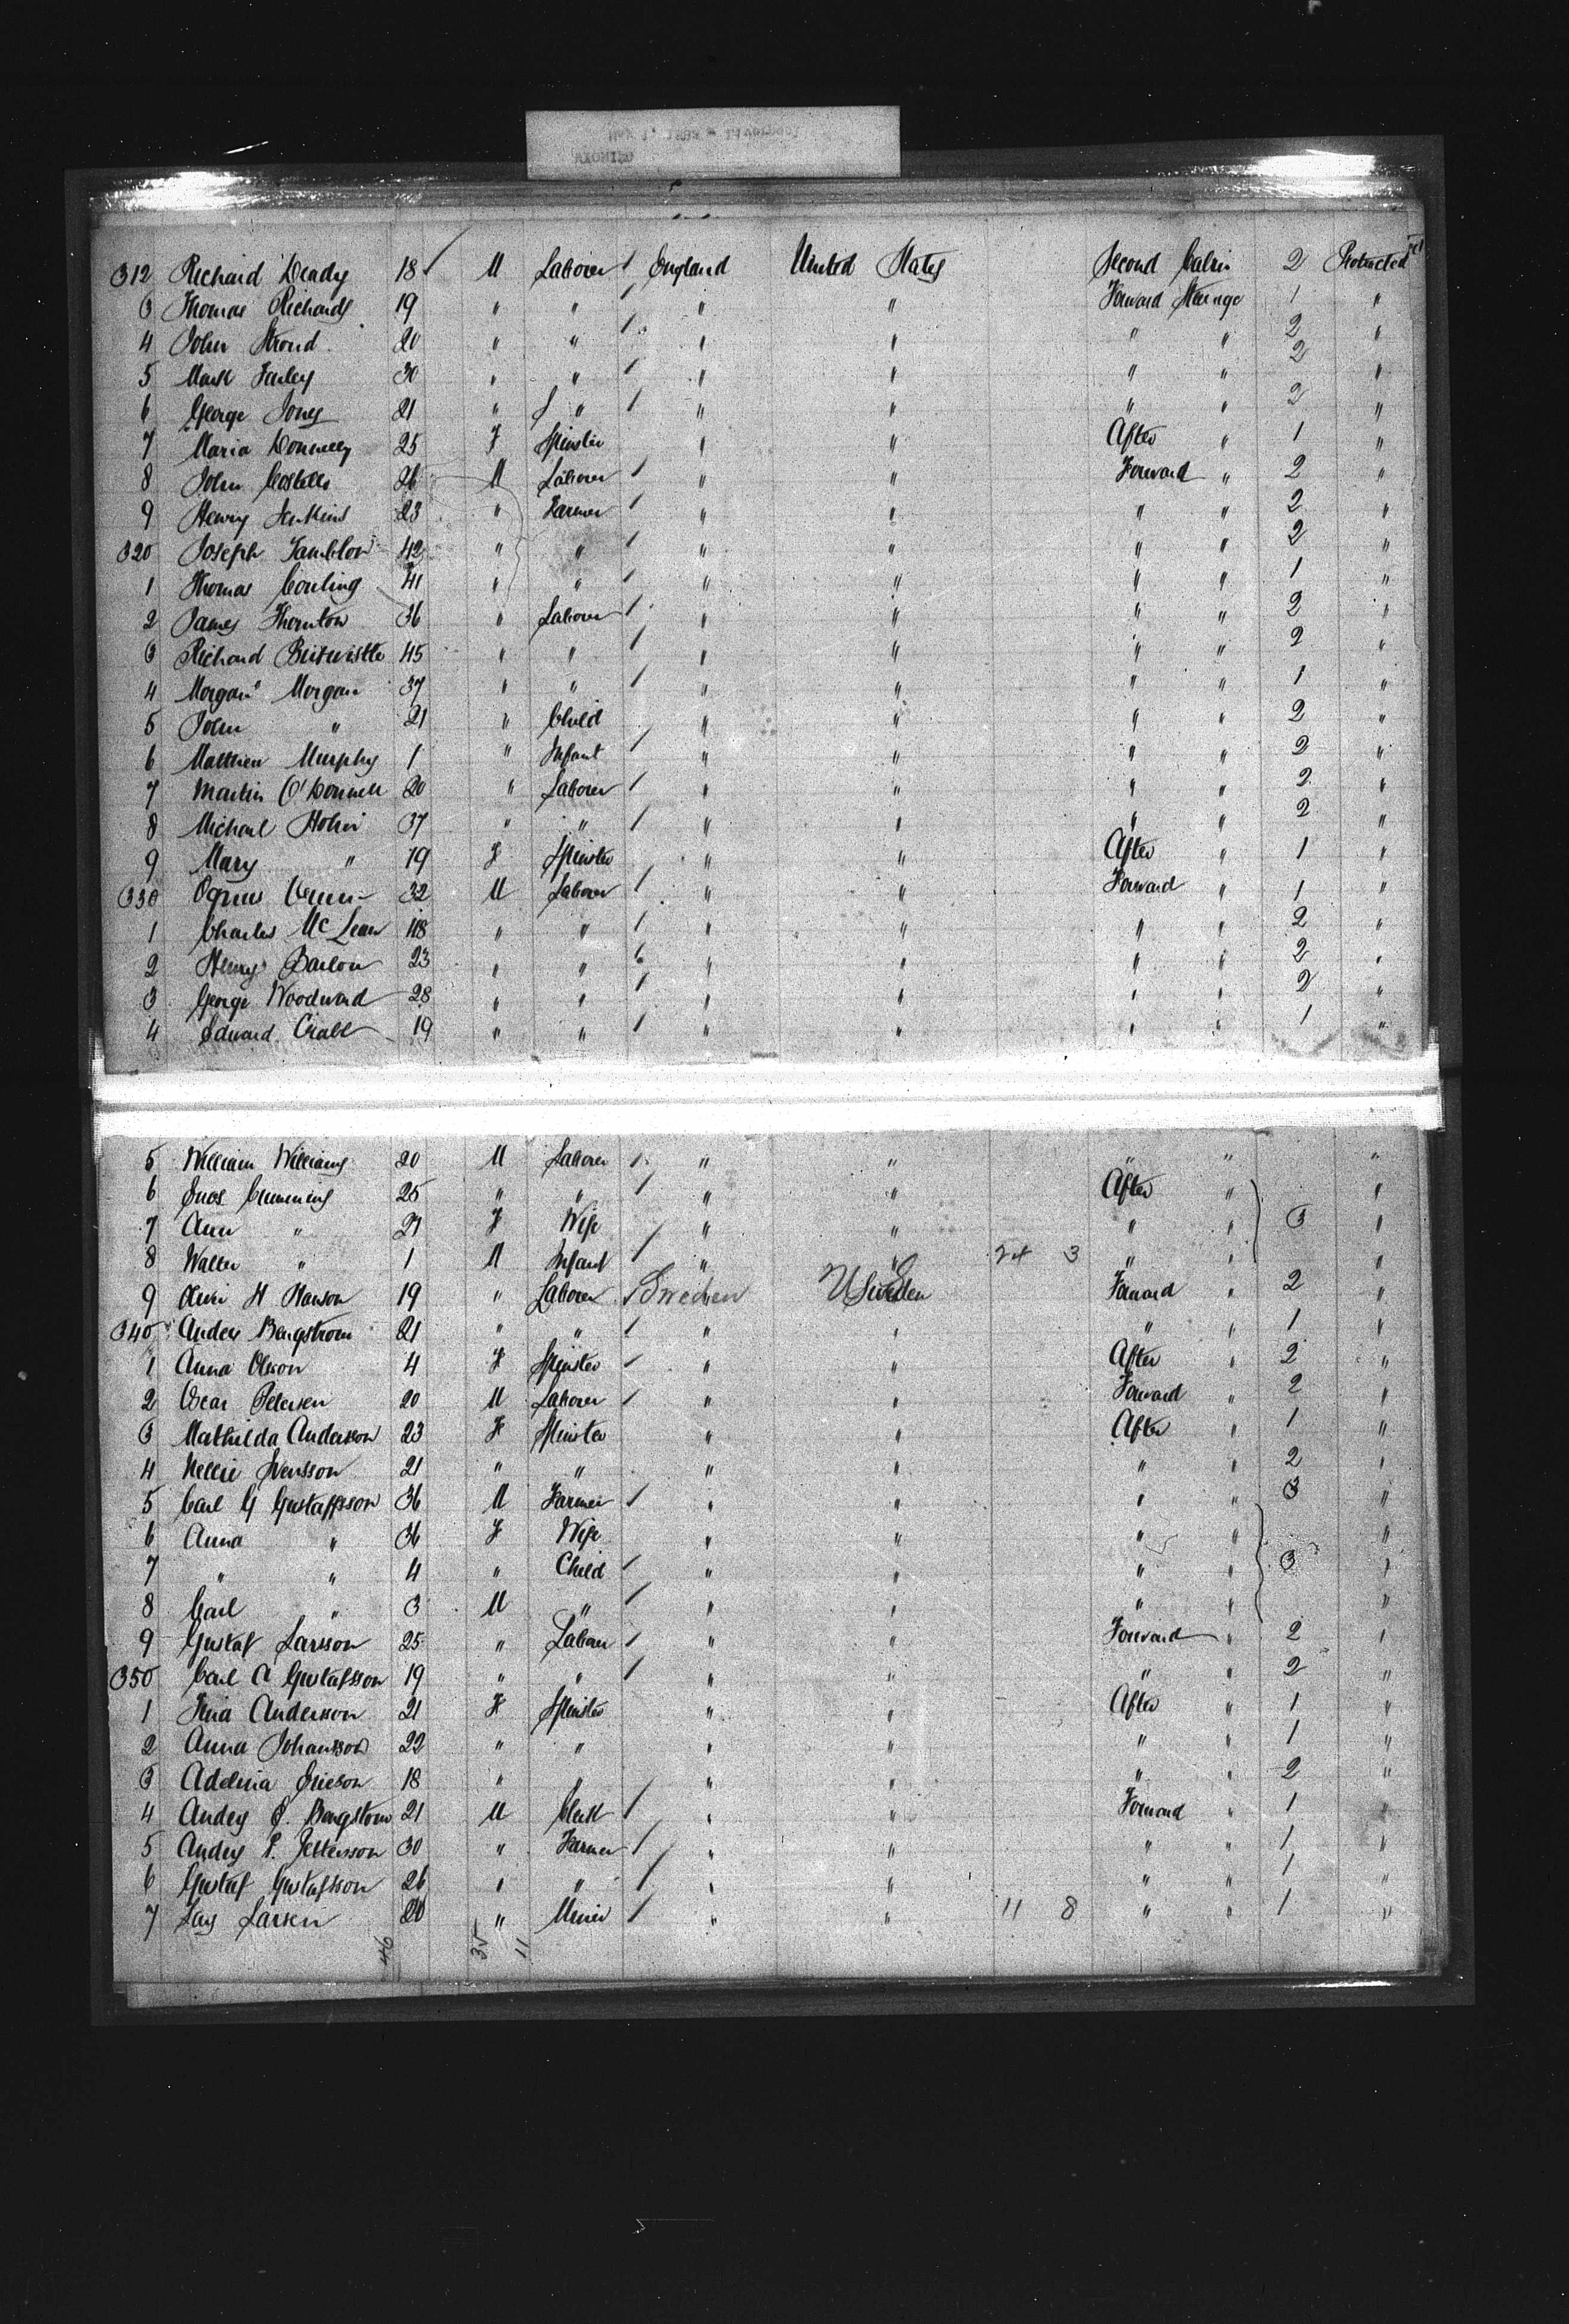 312 Richard Deady 18 M Laborer / England United States Second Cabin 2 Protracted
3 Thomas Richards 19 " " / " " Forward Steerage 1 "
4 John Stroud 20 " " / " " " " 2 "
5 Mark Farley 30 " " / " " " " 2 "
6 George Jones 21 " " / " " " " 2 "
7 Maria Donnelly 25 F Spinster " " After " 1 "
8 John Costello 26 M Laborer / " " Forward " 2 "
9 Henry Jenkins 23 " Farmer / " " " " 2 "
320 Joseph Tamblow 42 " " / " " " " 2 "
1 Thomas Couling 41 " " / " " " " 1 "
2 James Thornton 36 " Laborer / " " " " 2 "
3 Richard Birtwistle 45 " " / " " " " 2 "
4 Morgan Morgan 37 " " / " " " " 1 "
5 John " 21 " Child " " " " 2 "
6 Matthew Murphy 1 " Infant / " " " " 2 "
7 Martin O'Donnell 20 " Laborer / " " " " 2 "
8 Michael 37 " " / " " " " 2 "
9 Mary " 19 F Spinster " " After " 1 "
330 32 M Laborer / " " Forward " 1 "
1 Charles McLean 48 " " / " " " " 2 "
2 Henry Barlow 23 " " " " " " 2 "
3 George Woodward 28 " " / " " " " 2 "
4 Edward Crabb 19 " " / " " " " 1 "
5 William Williams 20 M Laborer / " " " " "
6 Enos Cumming 25 " " / " " After " "
7 Ann " 21 F Wife / " " " " 3 "
8 Walter " 1 M Infant / " " 24 3 " " "
9 H Hanson 19 " Laborer / Sweden U Sweden Forward " 2 "
340 Anders Bengstrom 21 " " / " " " " 1 "
1 Anna Olsson 4 F Spinster / " " After " 2 "
2 Oscar Petersen 20 M Laborer / " " Forward " 2 "
3 Mathilda Andersson 23 F Spinster " " After " 1 "
4 Nellie Svensson 21 " " " " " " 2 "
5 Carl G Gustaffsson 36 M Farmer / " " " " 3 "
6 Anna " 36 F Wife " " " " "
7 " " 4 " Child / " " " " 3 "
8 Carl " 3 M " / " " " " "
9 Gustaf Larsson 25 " Laborer / " " Forward " 2 "
350 Carl A Gustafsson 19 " " / " " " " 2 "
1 Andersson 21 F Spinster " " After " 1 "
2 Anna Johansson 22 " " " " " " 1 "
3 Adelina Ericson 18 " " " " " " 2 "
4 Anders Bengstrom 21 M Clerk / " " Forward " 1 "
5 Anders P. Pettersson 30 " Farmer / " " " " 1 "
6 Gustaf Gustafsson 26 " " / " " " " 1 "
7 Lars Larsen 20 " Miner / " " 11 8 " " 1 "
46 35 11